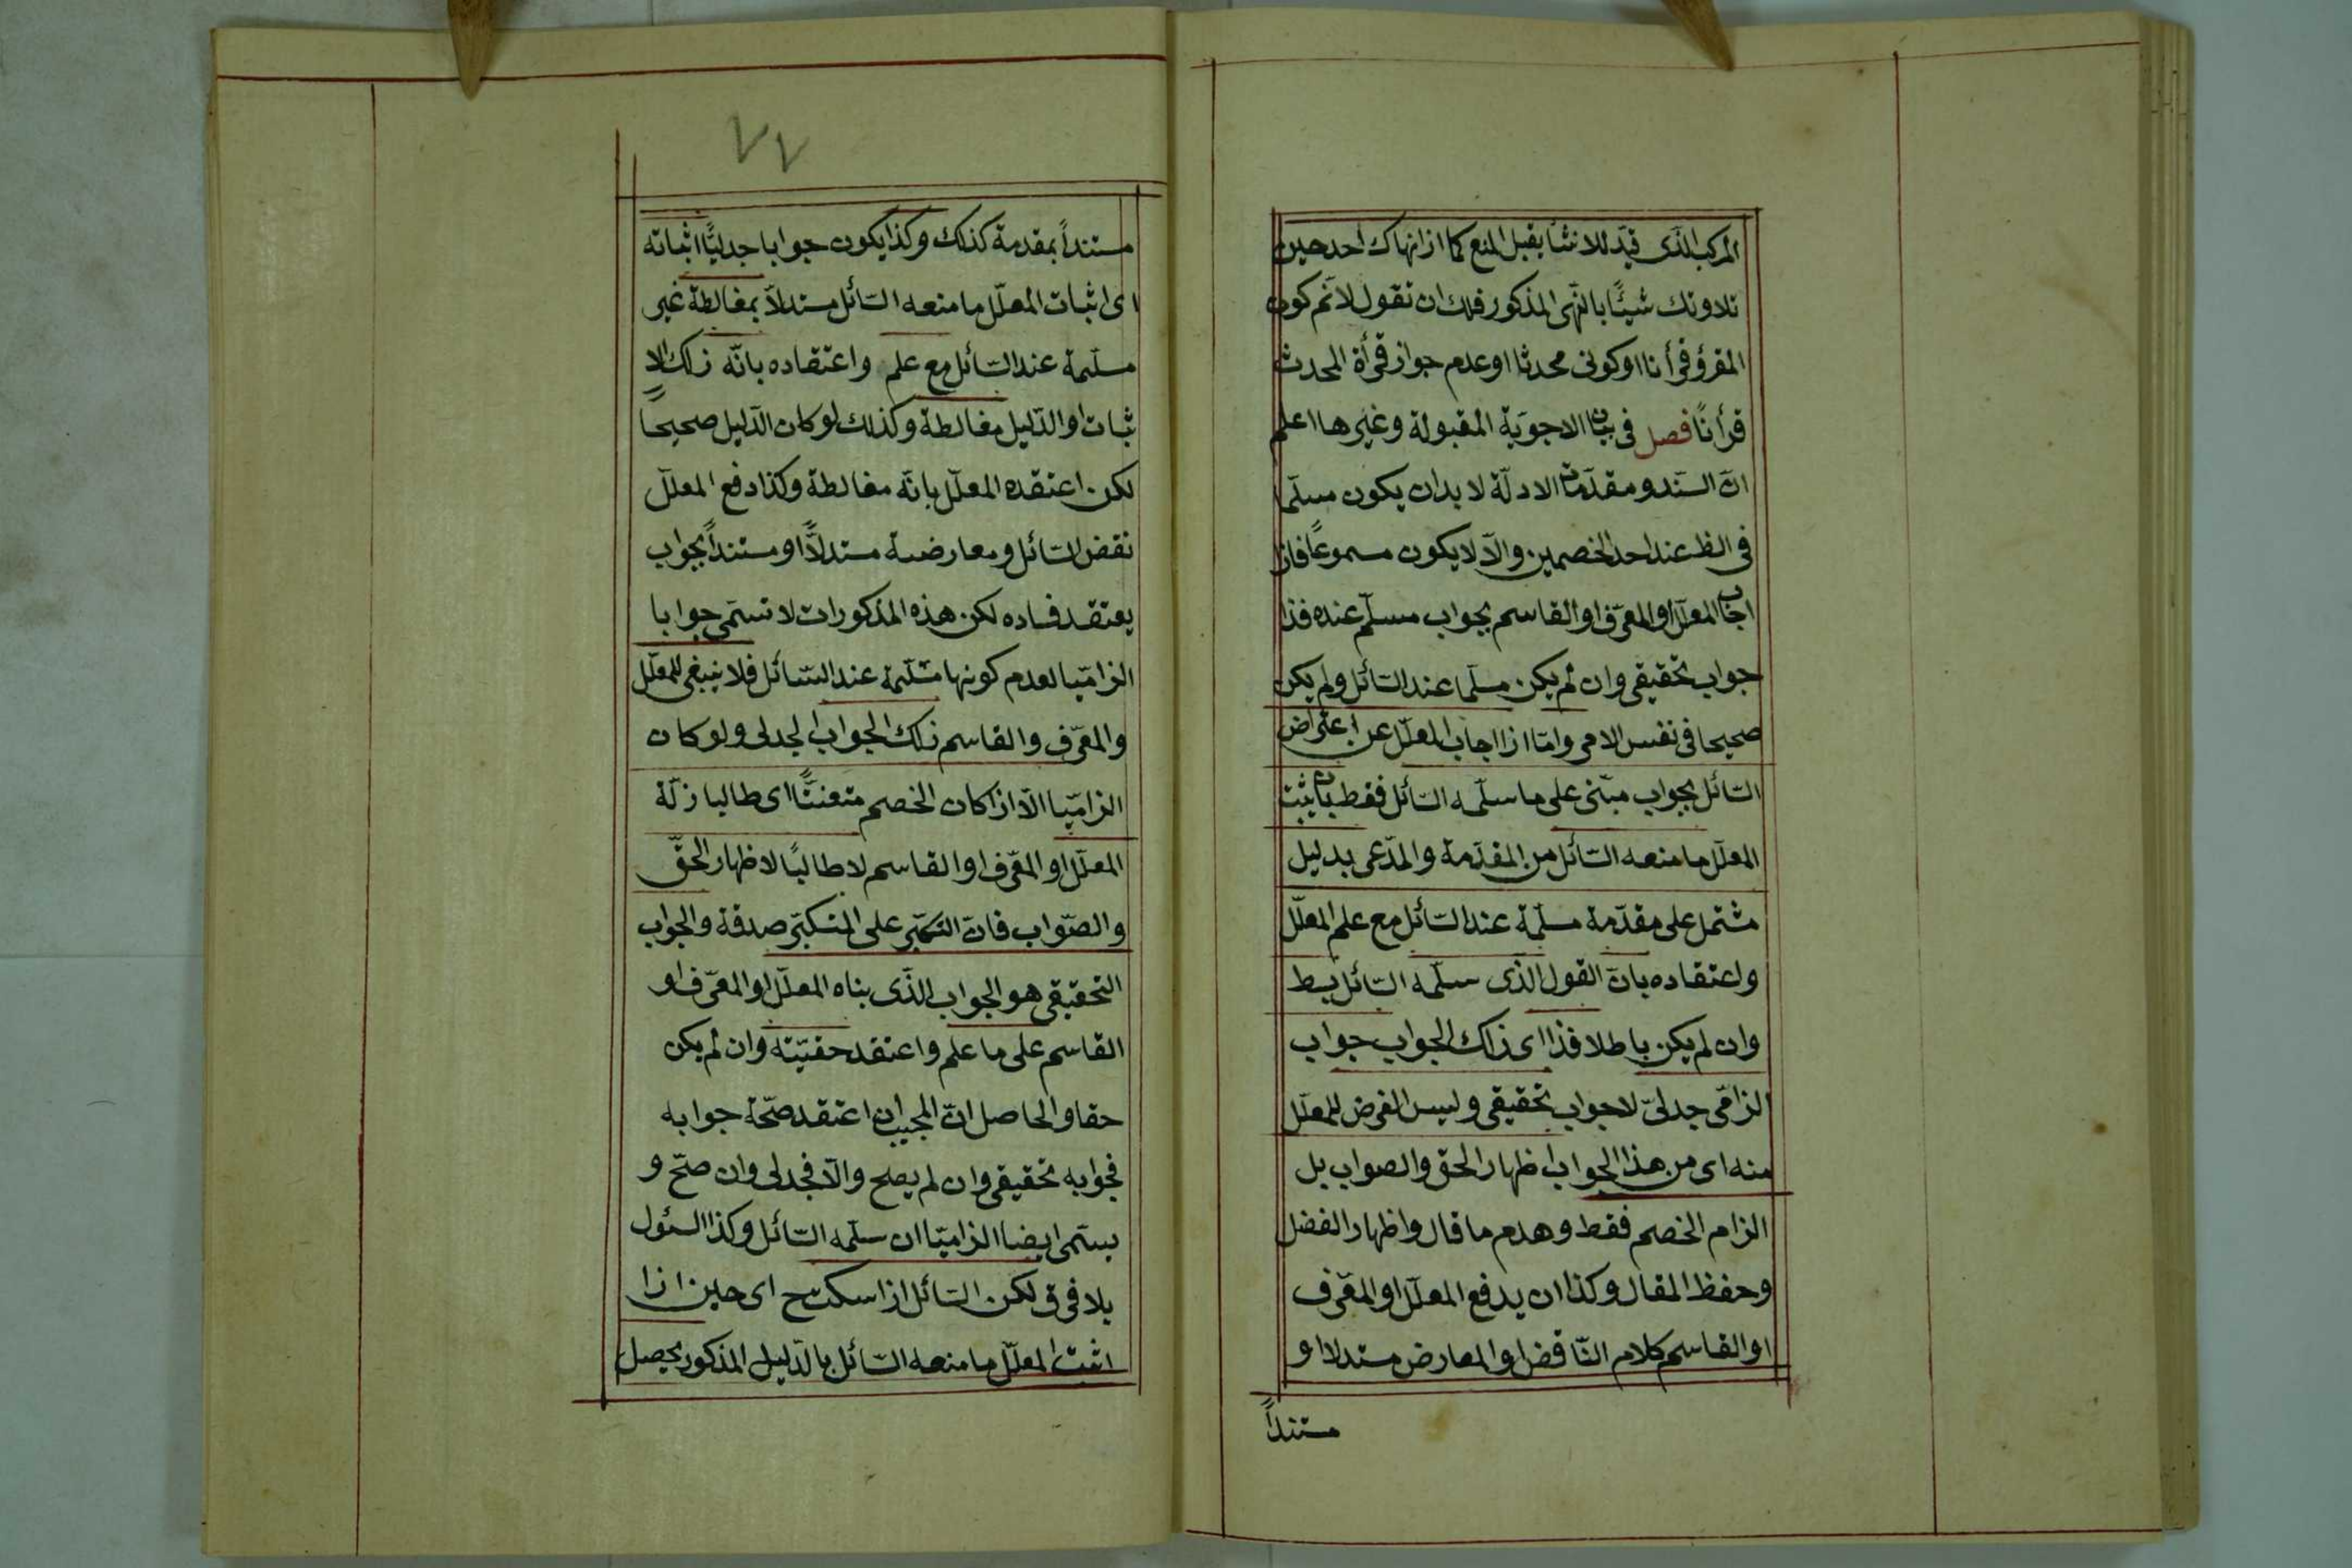 المركب الذى قيد للانشا يقبل المنع كما اذا نهاك احد حين
تلاوتك شيئًا بالنهى المذكور فلك ان تقول لا نم كون
المقرؤ قرأنا او كونى محدثا او عدم جواز قرأة المحدث
قرأنًا فصل فى بيان الاجوبة المقبولة وغيرها اعلم
انّ السّند ومقدّمات الادلّة لا بد ان يكون مسلّما
فى الظ عند احد الخصمين والّا لا يكون مسموعاً فان
اجاب المعلّل او المعرّف او القاسم بجواب مسلّم عنده فذا
جواب تحقيقى وان لم يكن مسلّما عند السّائل ولم يكن
صحيحا فى نفس الامر وامّا اذا اجاب المعلّل عن اعتراض
السّائل بجواب مبنى على ما سلّمه السّائل فقط بان يثبت
المعلّل ما منعه السّائل من المقدّمة والمدّعى بدليل
مشتمل على مقدّمة مسلّمة عند السّائل مع علم المعلّل
واعتقاده بانّ القول الذى سلّمه السّائل بط
وان لم يكن باطلا فذا اى ذاك الجواب جواب
الزامى جدلىّ لا جواب تحقيقى وليس الغرض للمعلّل
منه اى من هذا الجواب اظهار الحق والصواب بل
الزام الخصم فقط وهدم ما قال واظهار الفضل
وحفظ المقال وكذا ان يدفع المعلّل او المعرّف
او القاسم كلام النّاقض او المعارض مستدلا او
مستنداً
٧٧
مستنداً بمقدمة كذلك وكذا يكون جوابا جدليًّا اثباته
اى اثبات المعلّل ما منعه السّائل مستدلّا بمغالطة غير
مسلّمة عند السّائل مع علم واعتقاده بانّه ذلك الا
ثبات او الدّليل مغالطة وكذلك لو كان الدّليل صحيحاً
لكن اعتقده المعلّل بانّه مغالطة وكذا دفع المعلّل
نقض السّائل ومعارضة مستدلًّا او مستنداً بجواب
يعتقد فساده لكن هذه المذكورات لا تسمّى جوابا
الزاميّا لعدم كونها مسّلمة عند السّائل فلا ينبغى للمعلّل
والمعرّف والقاسم ذلك الجواب الجدلى ولو كان
الزاميّا الّا اذا كان الخصم متعنتًّا اى طالبا زلّة
المعلّل او المعّرف او القاسم لا طالبًا لاظهار الحقّ
والصّواب فانّ التكبّر على المتكبّر صدقة والجواب
التحقيقى هو الجواب الذّى بناه المعلّل او المعّرف او
القاسم على ما علم واعتقد حقيّته وان لم يكن
حقا والحاصل انّ المجيب ان اعتقد صحّة جوابه
فجوابه تحقيقى وان لم يصح والّا فجدلى وان صحّ و
يسمّى ايضا الزاميّا ان سلّمه السّائل وكذا السئول
بلا فرق لكن السّائل اذا سكت ح اى حين اذا
اثبت المعلّل ما منعه السّائل بالدّليل المذكور يحصل